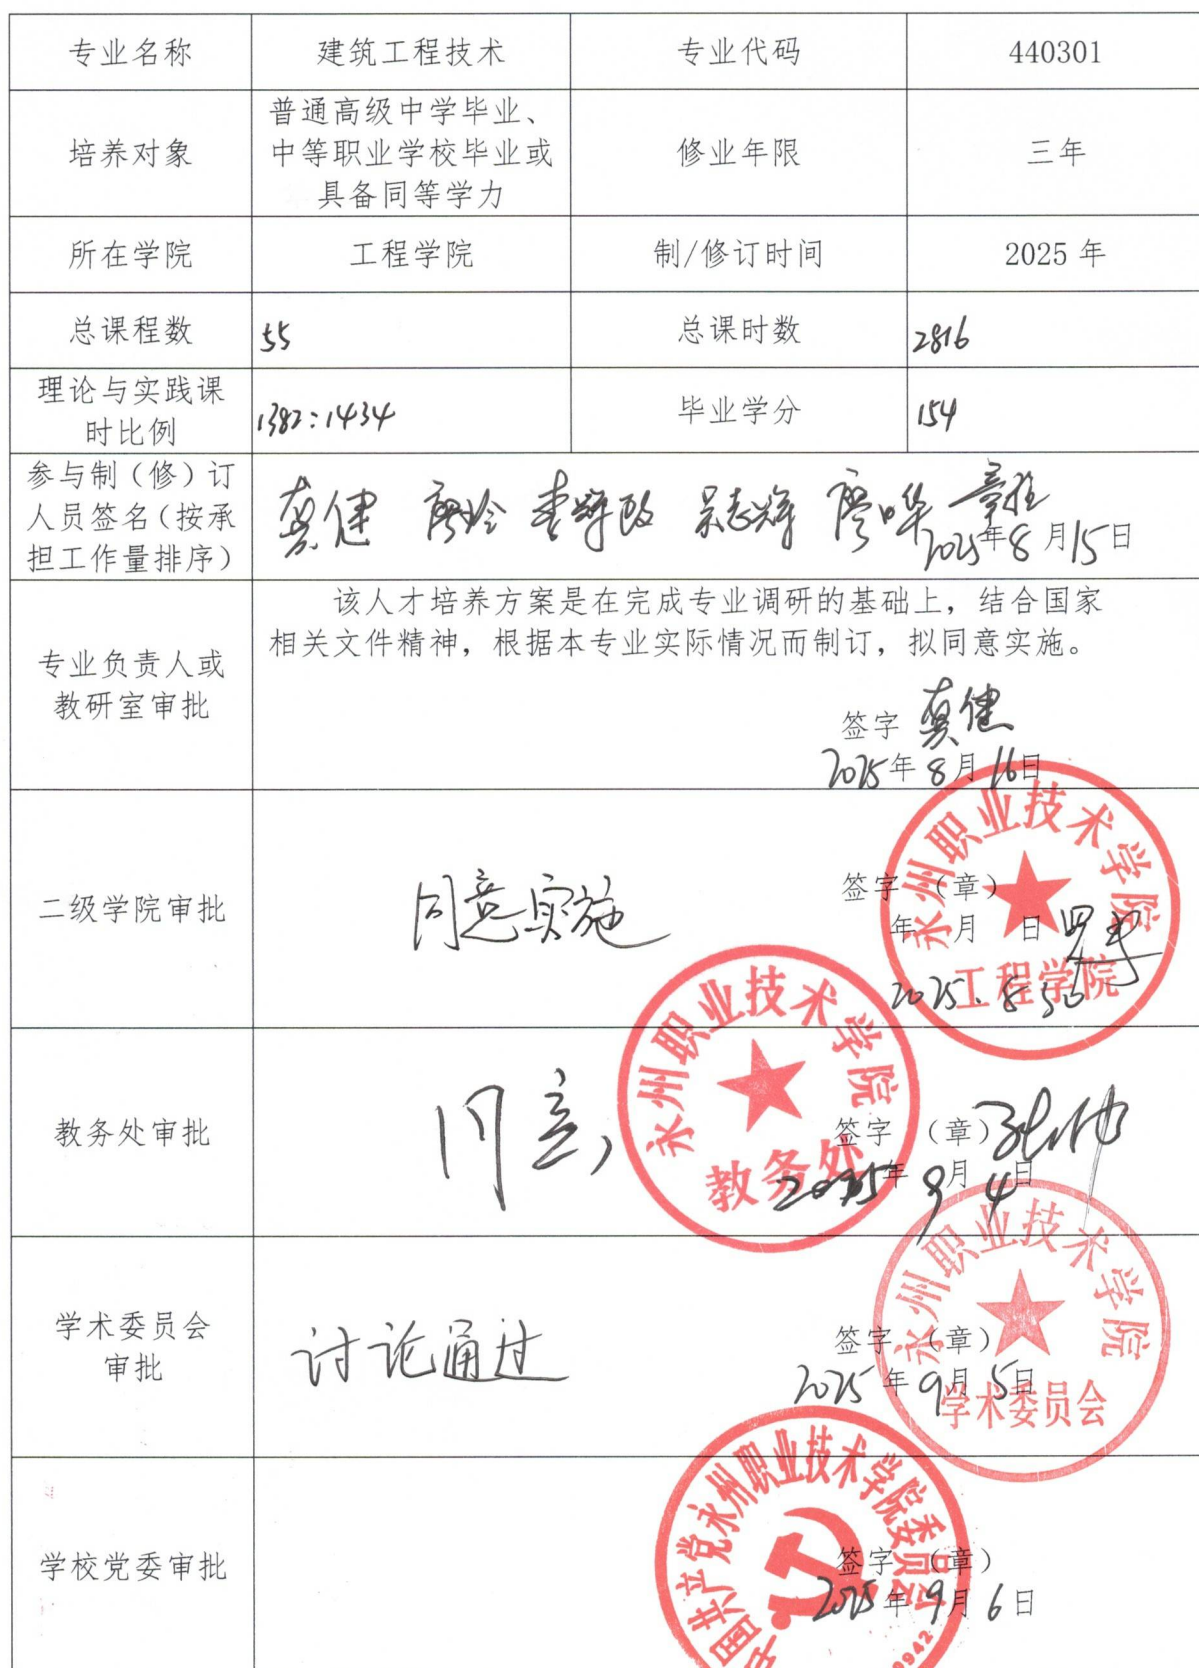 专业名称 建筑工程技术 专业代码 440301
普通高级中学毕业、
培养对象 中等职业学校毕业或 修业年限 三年
具备同等学力
所在学院 工程学院 制/修订时间 2025 年
总课程数 55 总课时数 2816
理论与实践课
时比例 1382:1434 毕业学分 154
参与制（修）订
人员签名（按承
担工作量排序）
吴志辉
2025年8月15日
该人才培养方案是在完成专业调研的基础上，结合国家
相关文件精神，根据本专业实际情况而制订，拟同意实施。
专业负责人或
教研室审批
签字
2025年8月16日
二级学院审批
同意实施
签字（章）
年 月 日
2025.8
永州职业技术学院
工程学院
教务处审批
同意
签字（章）
2025年9月4日
永州职业技术学院
教务处
学术委员会
审批
讨论通过
签字（章）
2025年9月5日
永州职业技术学院
学术委员会
学校党委审批
签字（章）
2025年9月6日
中国共产党永州职业技术学院委员会